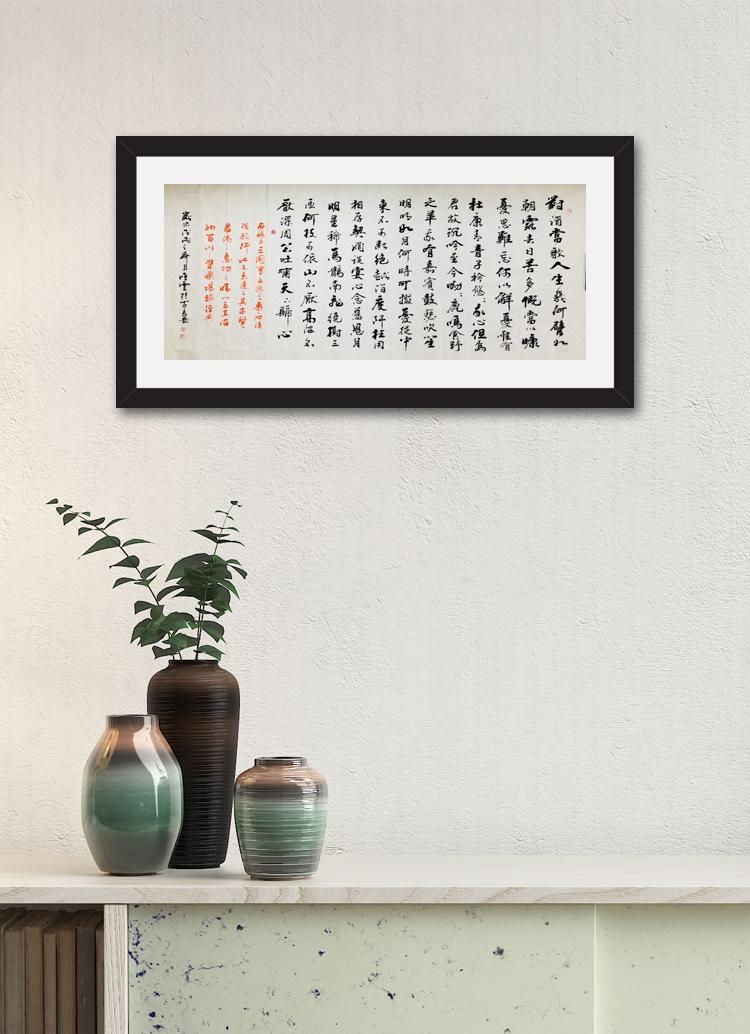 對酒當歌人生幾何譬如
朝露去日苦多慨當以慷
憂思難忘何以解憂惟有
杜康青青子衿悠々我心但為
君故沉吟至今呦々鹿鳴食野
之苹我有嘉賓鼓瑟吹笙
明明如月何時可掇憂從中
來不可斷絕越陌度阡枉用
相存契闊談宴心念舊恩月
明星稀烏鵲南飛繞樹三
匝何枝可依山不厭高海不
厭深周公吐哺天下歸心
三國曹孟德之樂府詩
短歌行
百川
歲次